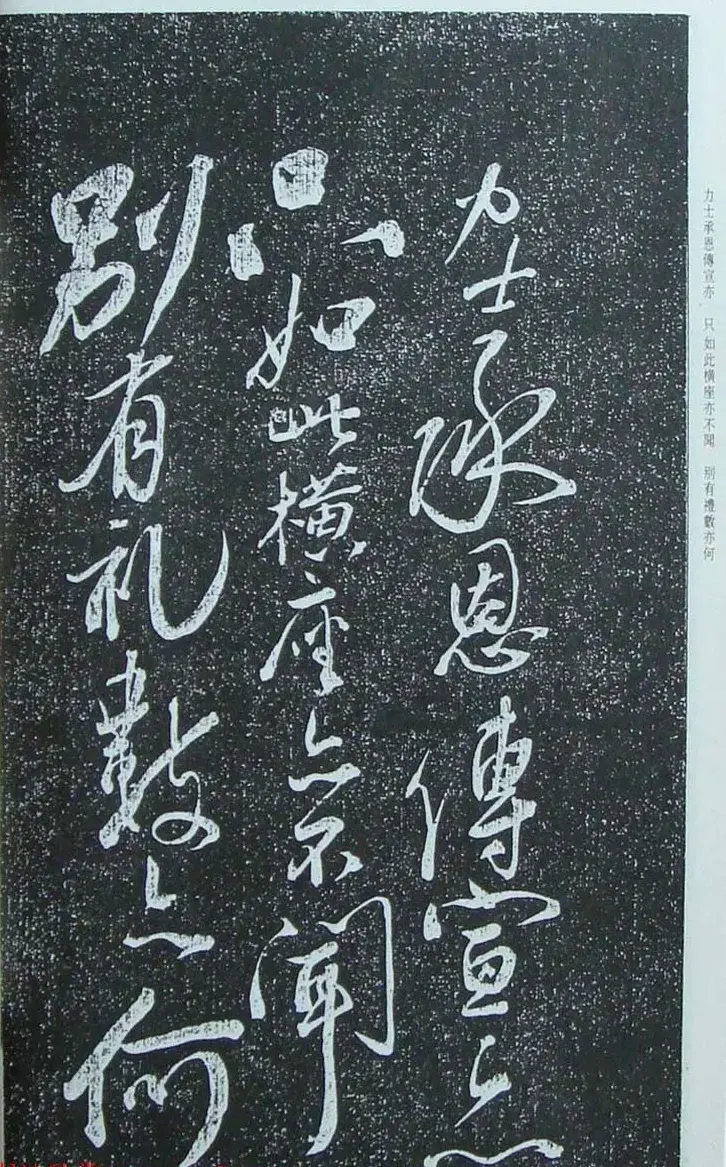 力士承恩傳宣亦
只如此横座亦不聞
别有礼數亦何
力士承恩傳宣亦 只如此橫座亦不聞 别有禮數亦何